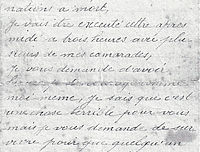 nation à mort,
Je vais être executé cette après
midi à trois heures avec plu-
sieurs de mes camarades,
Je vous demande d'avoir
moi même, je sais que c'est
une chose terrible pour vous
mais je vous demande de sur-
vivre pour que quelqu'un